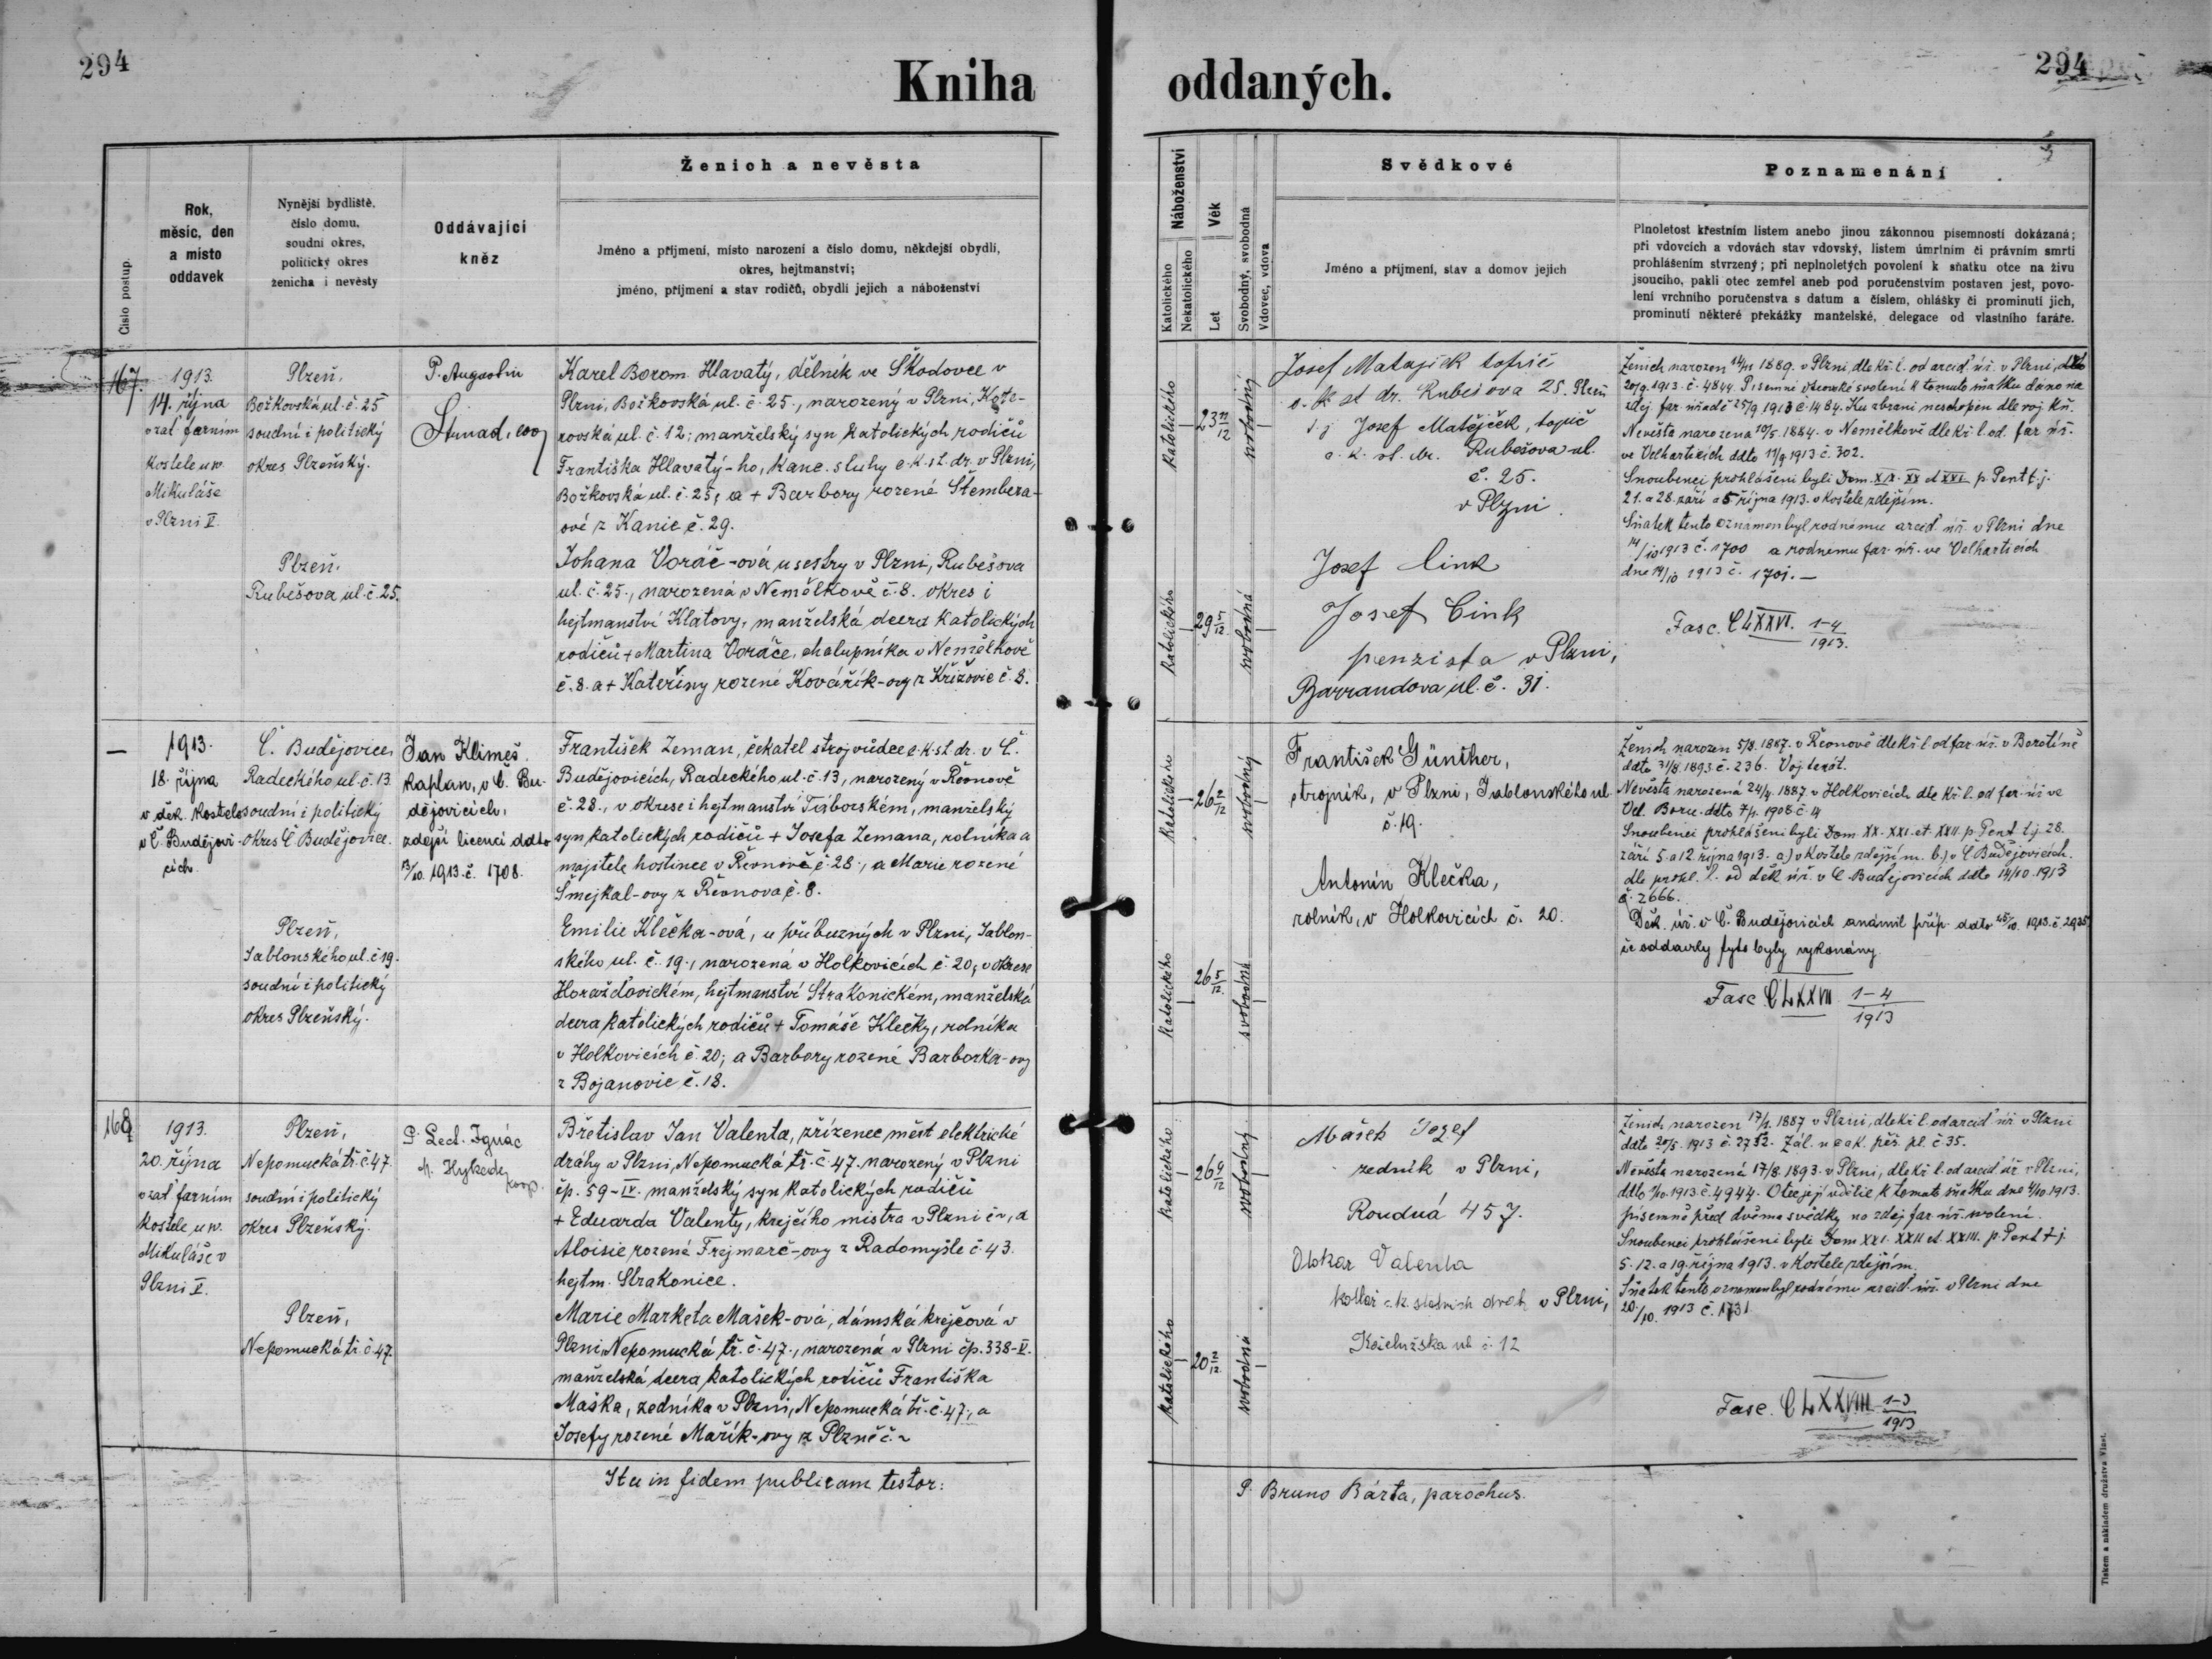 294
Kniha
oddaných.
294
Číslo postup.
Rok,
měsíc, den
a místo
oddavek
Nynější bydliště,
číslo domu,
soudní okres,
politický okres
ženicha i nevěsty
Oddávající
kněz
Ženich a nevěsta
Jméno a příjmení, místo narození a číslo domu, někdejší obydlí,
okres, hejtmanství;
jméno, příjmení a stav rodičů, obydlí jejich a náboženství
Náboženství
Katolického
Nekatolického
Věk
Let
Svobodný, svobodná
Vdovec, vdova
Svědkové
Jméno a příjmení, stav a domov jejich
Poznamenání
Plnoletost křestním listem anebo jinou zákonnou písemností dokázaná;
při vdovcích a vdovách stav vdovský, listem úmrtním či právním smrti
prohlášením stvrzený; při neplnoletých povolení k sňatku otce na živu
jsoucího, pakli otec zemřel aneb pod poručenstvím postaven jest, povo-
lení vrchního poručenstva s datum a číslem, ohlášky či prominutí jich,
prominutí některé překážky manželské, delegace od vlastního faráře.
167.
1913.
14. října
v zat. farním
kostele u sv.
Mikuláše
v Plzni V.
Plzeň,
Božkovská ul. č. 25
soudní i politický
okres Plzeňský.
Plzeň.
Rubešova ul. č. 25.
P. Augustin
Karel Borom. Hlavatý, dělník ve Škodovce v
Plzni, Božkovská ul. č. 25., narozený v Plzni, Kote-
rovská ul. č. 12; manželský syn katolických rodičů
Františka Hlavatý-ho, kanc. sluhy c. k. st. dr. v Plzni,
Božkovská ul. č. 25, a + Barbory rozené Štembera-
ové z Kanic č. 29.
Johana Voráč-ová u sestry v Plzni, Rubešova
ul. č. 25., narozená v Nemělkově č. 8. okres i
hejtmanství Klatovy, manželská dcera katolických
rodičů + Martina Voráče, chalupníka v Nemělkově
č. 8. a + Kateřiny rozené Kovářík-ovy z Křížovic č. 8.
Katolického
23 11/12
svobodný
Katolického
29 5/12
svobodná
Josef Matejíček topič
c. k. st. dr. Rubešova 25. Plzeň
t. j. Josef Matějček, topič
c. k. st. dr. Rubešova ul.
č. 25.
v Plzni.
Josef Cink
Josef Cink
penzista v Plzni,
Barrandova ul. č. 31.
Ženich narozen 14/11 1889. v Plzni, dle kř. l. od arcid. úř. v Plzni, ddto
20/9. 1913. č. 4844. Písemné otcovské svolení k tomuto sňatku dáno na
zdej. far. úřadě 25/9 1913 č. 1484. Ku zbrani neschopen dle voj. kn.
Nevěsta narozena 10/5. 1884. v Nemělkově dle kř. l. od. far. úř.
ve Velharticích ddto 11/9 1913 č. 302.
Snoubenci prohlášeni byli Dom. XIX. XX et XXI. p. Pent t. j.
21. a 28. září a 5 října 1913. v kostele zdejším.
Sňatek tento oznámen byl rodnému arcid. úř. v Plzni dne
14/10 1913 č. 1700 a rodnému far. úř. ve Velharticích
dne 14/10 1913 č. 1701.
Fasc. CLXXVI. 1-4
1913.
1913.
18. října
v děk. kostele
v Č. Budějovi-
cích.
Č. Budějovice,
Radeckého ul. č. 13
soudní i politický
okres Č. Budějovice.
Plzeň,
Jablonského ul. č. 19.
soudní i politický
okres Plzeňský.
Jan Klimeš,
kaplan, v Č. Bu-
dějovicích,
zdejší licencí ddto
13/10. 1913. č. 1708.
František Zeman, čekatel strojvůdce c. k. st. dr. v Č.
Budějovicích, Radeckého ul. č. 13, narozený v Řeonově
č. 28., v okrese i hejtmanství Táborském, manželský
syn katolických rodičů + Josefa Zemana, rolníka a
majitele hostince v Řeonově č. 28., a Marie rozené
Šmejkal-ovy z Řeonova č. 8.
Emilie Klečka-ová, u příbuzných v Plzni, Jablon-
ského ul. č. 19., narozená v Holkovicích č. 20, v okrese
Horažďovickém, hejtmanství Strakonickém, manželská
dcera katolických rodičů + Tomáše Klečky, rolníka
v Holkovicích č. 20; a Barbory rozené Barborka-ovy
z Bojanovic č. 18.
Katolického
26 2/12
svobodný
Katolického
26 5/12
svobodná
František Günther,
strojník, v Plzni, Jablonského ul.
č. 19.
Antonín Klečka,
rolník, v Holkovicích č. 20.
Ženich narozen 5/8. 1887. v Řeonově dle kř. l. od far. úř. v Borotíně
ddto 31/8. 1893. č. 236.
Nevěsta narozená 24/4. 1887. v Holkovicích dle kř. l. od far. úř. ve
Vel. Boru ddto 7/1. 1908. č. 14
Snoubenci prohlášeni byli Dom. XX. XXI. et. XXII. p. Pent. t. j. 28.
září 5. a 12. října 1913. a) v kostele zdejším. b.) v Č. Budějovicích.
dle prohl. l. od děk. úř. v Č. Budějovicích ddto 14/10. 1913
č. 2666.
Děk. úř. v Č. Budějovicích známil příp. ddto 25/10. 1913. č. 2925
že oddavky tyto byly vykonány.
Fasc CLXXVII 1-4
1913
168
1913.
20. října
v zat farním
kostele u sv.
Mikuláše v
Plzni V.
Plzeň,
Nepomucká tř. č. 47.
soudní i politický
okres Plzeňský.
Plzeň,
Nepomucká tř. č. 47.
P. Lect. Ignác
Břetislav Jan Valenta, zřízenec měst elektrické
dráhy v Plzni, Nepomucká tř. č. 47. narozený v Plzni
čp. 59-IV. manželský syn katolických rodičů
+ Eduarda Valenty, krejčího mistra v Plzni č ~, a
Aloisie rozené Frejmarč-ovy z Radomyšle č. 43.
hejtm. Strakonice.
Marie Marketa Mašek-ová, dámská krejčová v
Plzni, Nepomucká tř. č. 47., narozená v Plzni čp. 338-V.
manželská dcera katolických rodičů Františka
Maška, zedníka v Plzni, Nepomucká tř. č. 47., a
Josefy rozené Mařík-ovy z Plzně č. ~
Katolického
26 9/12
svobodný
Katolického
20 2/12
svobodná
Mašek Josef
zedník v Plzni,
Roudná 457.
Otokar Valenta
kotlář c. k. státních drah v Plzni,
Koželužska ul. č. 12
Ženich narozen 17/1. 1887 v Plzni, dle kř. l. od arcid. úř. v Plzni
ddto 20/5. 1913 č. 2752. Zál. u c. a k. pěš. pl. č. 35.
Nevěsta narozená 17/8. 1893. v Plzni, dle kř. l. od arcid. úř. v Plzni,
ddto 1/10. 1913. č. 4944. Otec její udělil k tomuto sňatku dne 4/10. 1913.
písemně před dvěma svědky na zdej. far. úř. svolení.
Snoubenci prohlášeni byli Dom XXI. XXII et. XXIII. p. Pent t. j.
5. 12. a 19. října 1913. v kostele zdejším.
Sňatek tento oznámen byl rodnému arcid. úř. v Plzni dne
20/10. 1913 č. 1731.
Fasc. CLXXVIII 1-3
1913
Ita in fidem publicam testor:
P. Bruno Bárta, parochus.
Tiskem a nákladem družstva Vlast.